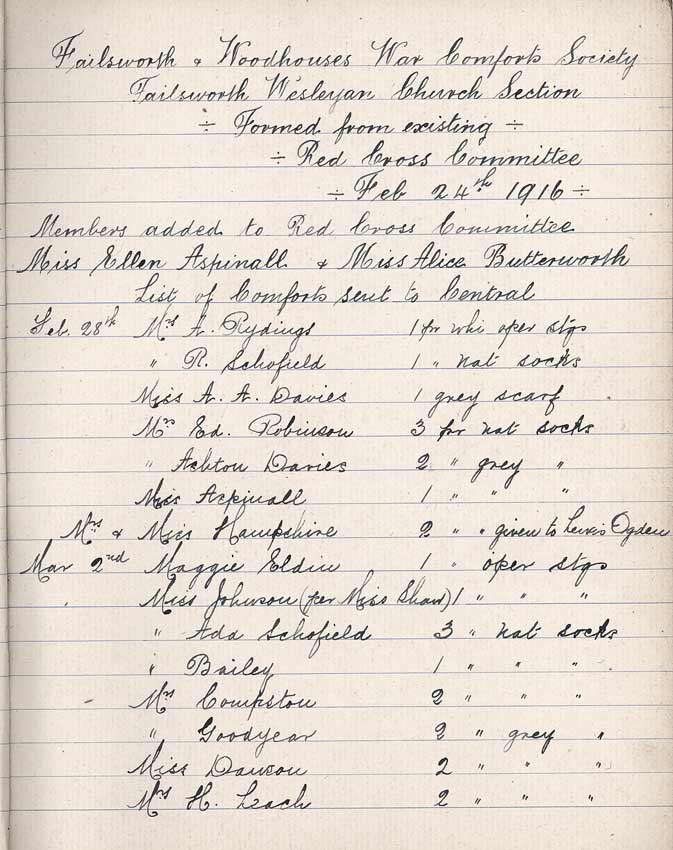 Failsworth & Woodhouses War Comforts Society
Failsworth Wesleyan Church Section
÷ Formed from existing ÷
÷ Red Cross Committee
÷ Feb 24th 1916 ÷
Members added to Red Cross Committee
Miss Ellen Aspinall & Miss Alice Butterworth
List of Comforts sent to Central
Feb. 28th Mrs A. Rydings 1 pr whi oper stgs
" R. Schofield 1 " nat socks
Miss A. A. Davies 1 grey scarf
Mrs Ed. Robinson 3 pr nat socks
" Ashton Davies 2 " grey "
Miss Aspinall 1 " " "
Mrs & Miss Hampshire 2 " " given to Lewis Ogden
Mar 2nd Maggie Eldin 1 " oper stgs
Miss Johnson (per Miss Shaw) 1 " " "
" Ada Schofield 3 " nat socks
" Bailey 1 " " "
Mrs Compston 2 " " "
" Goodyear 2 " grey "
Miss Dawson 2 " " "
Mrs H. Leach 2 " " "